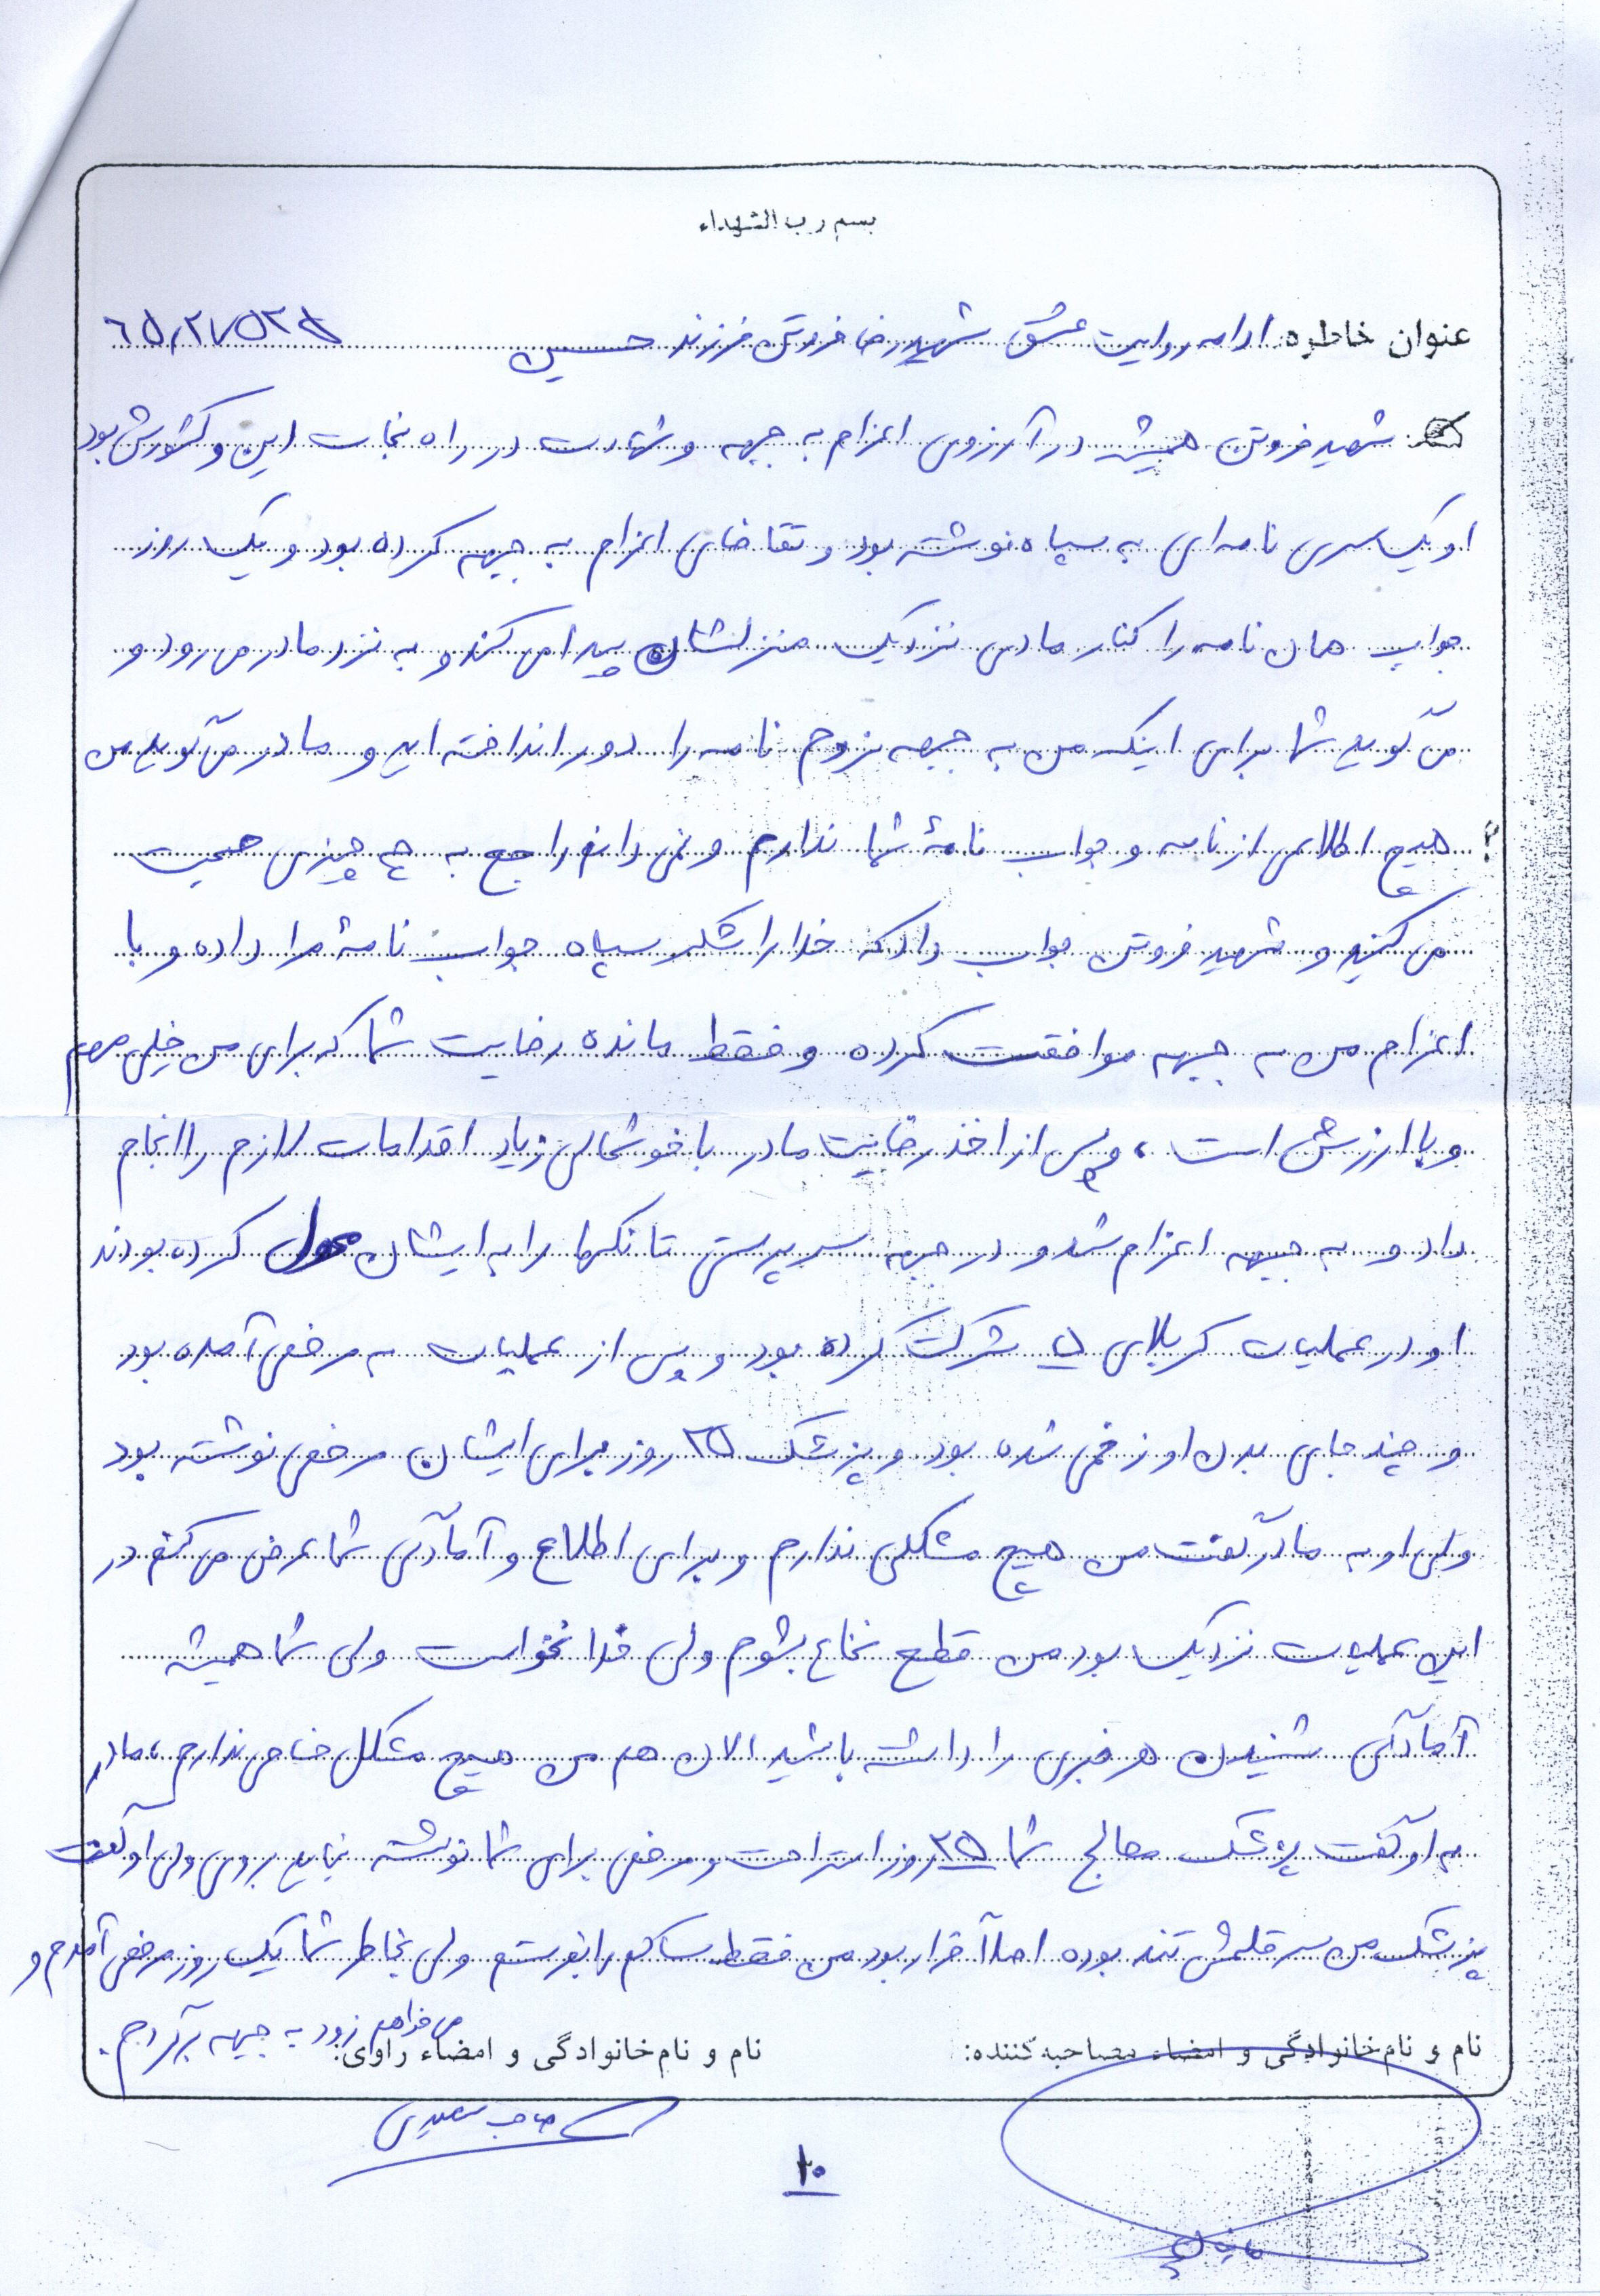 بسم رب الشهداء
عنوان خاطره ادامه روایت عشق شهید رضا فروتن فرزند حسین
شهید فروتن همیشه در آرزوی اعزام به جبهه و شهادت در راه نجات دین و کشورش بود
او یکسری نامه‌ای به سپاه نوشته بود و تقاضای اعزام به جبهه کرده بود و یک روز
جواب همان نامه را کنار مادی نزدیک منزلشان پیدا می کند و به نزد مادر می رود و
می گوید شما برای اینکه من به جبهه نروم نامه را دور انداخته اید و مادر می گوید من
هیچ اطلاعی از نامه و جواب نامهٔ شما ندارم و نمی دانم راجع به چه چیزی صحبت
می کنید و شهید فروتن جواب داد که خدا را شکر سپاه جواب نامهٔ مرا داده و با
اعزام من به جبهه موافقت کرده و فقط مانده رضایت شما که برای من خیلی مهم
و با ارزش است ، و پس از اخذ رضایت مادر با خوشحالی زیاد اقدامات لازم را انجام
داد و به جبهه اعزام شد و در جبهه سرپرستی تانکها را به ایشان محول کرده بودند
او در عملیات کربلای ۵ شرکت کرده بود و پس از عملیات به مرخصی آمده بود
و چند جای بدن او زخمی شده بود و پزشک ۲۵ روز برای ایشان مرخصی نوشته بود
ولی او به مادر گفت من هیچ مشکلی ندارم و برای اطلاع و آمادگی شما عرض می کنم در
این عملیات نزدیک بود من قطع نخاع بشوم ولی خدا نخواست ولی شما همیشه
آمادگی شنیدن هر خبری را داشته باشید الان هم من هیچ مشکل خاصی ندارم ، مادر
به او گفت پزشک معالج شما ۲۵ روز استراحت و مرخصی برای شما نوشته نباید بروی ولی او گفت
پزشک من سر قلمش تند بوده اصلاً قرار بود من فقط ساکم را بفرستم ولی بخاطر شما یک روز مرخصی آمدم و
می خواهم زود به جبهه برگردم.
نام و نام‌خانوادگی و امضاء مصاحبه‌کننده: نام و نام‌خانوادگی و امضاء راوی:
۲۰